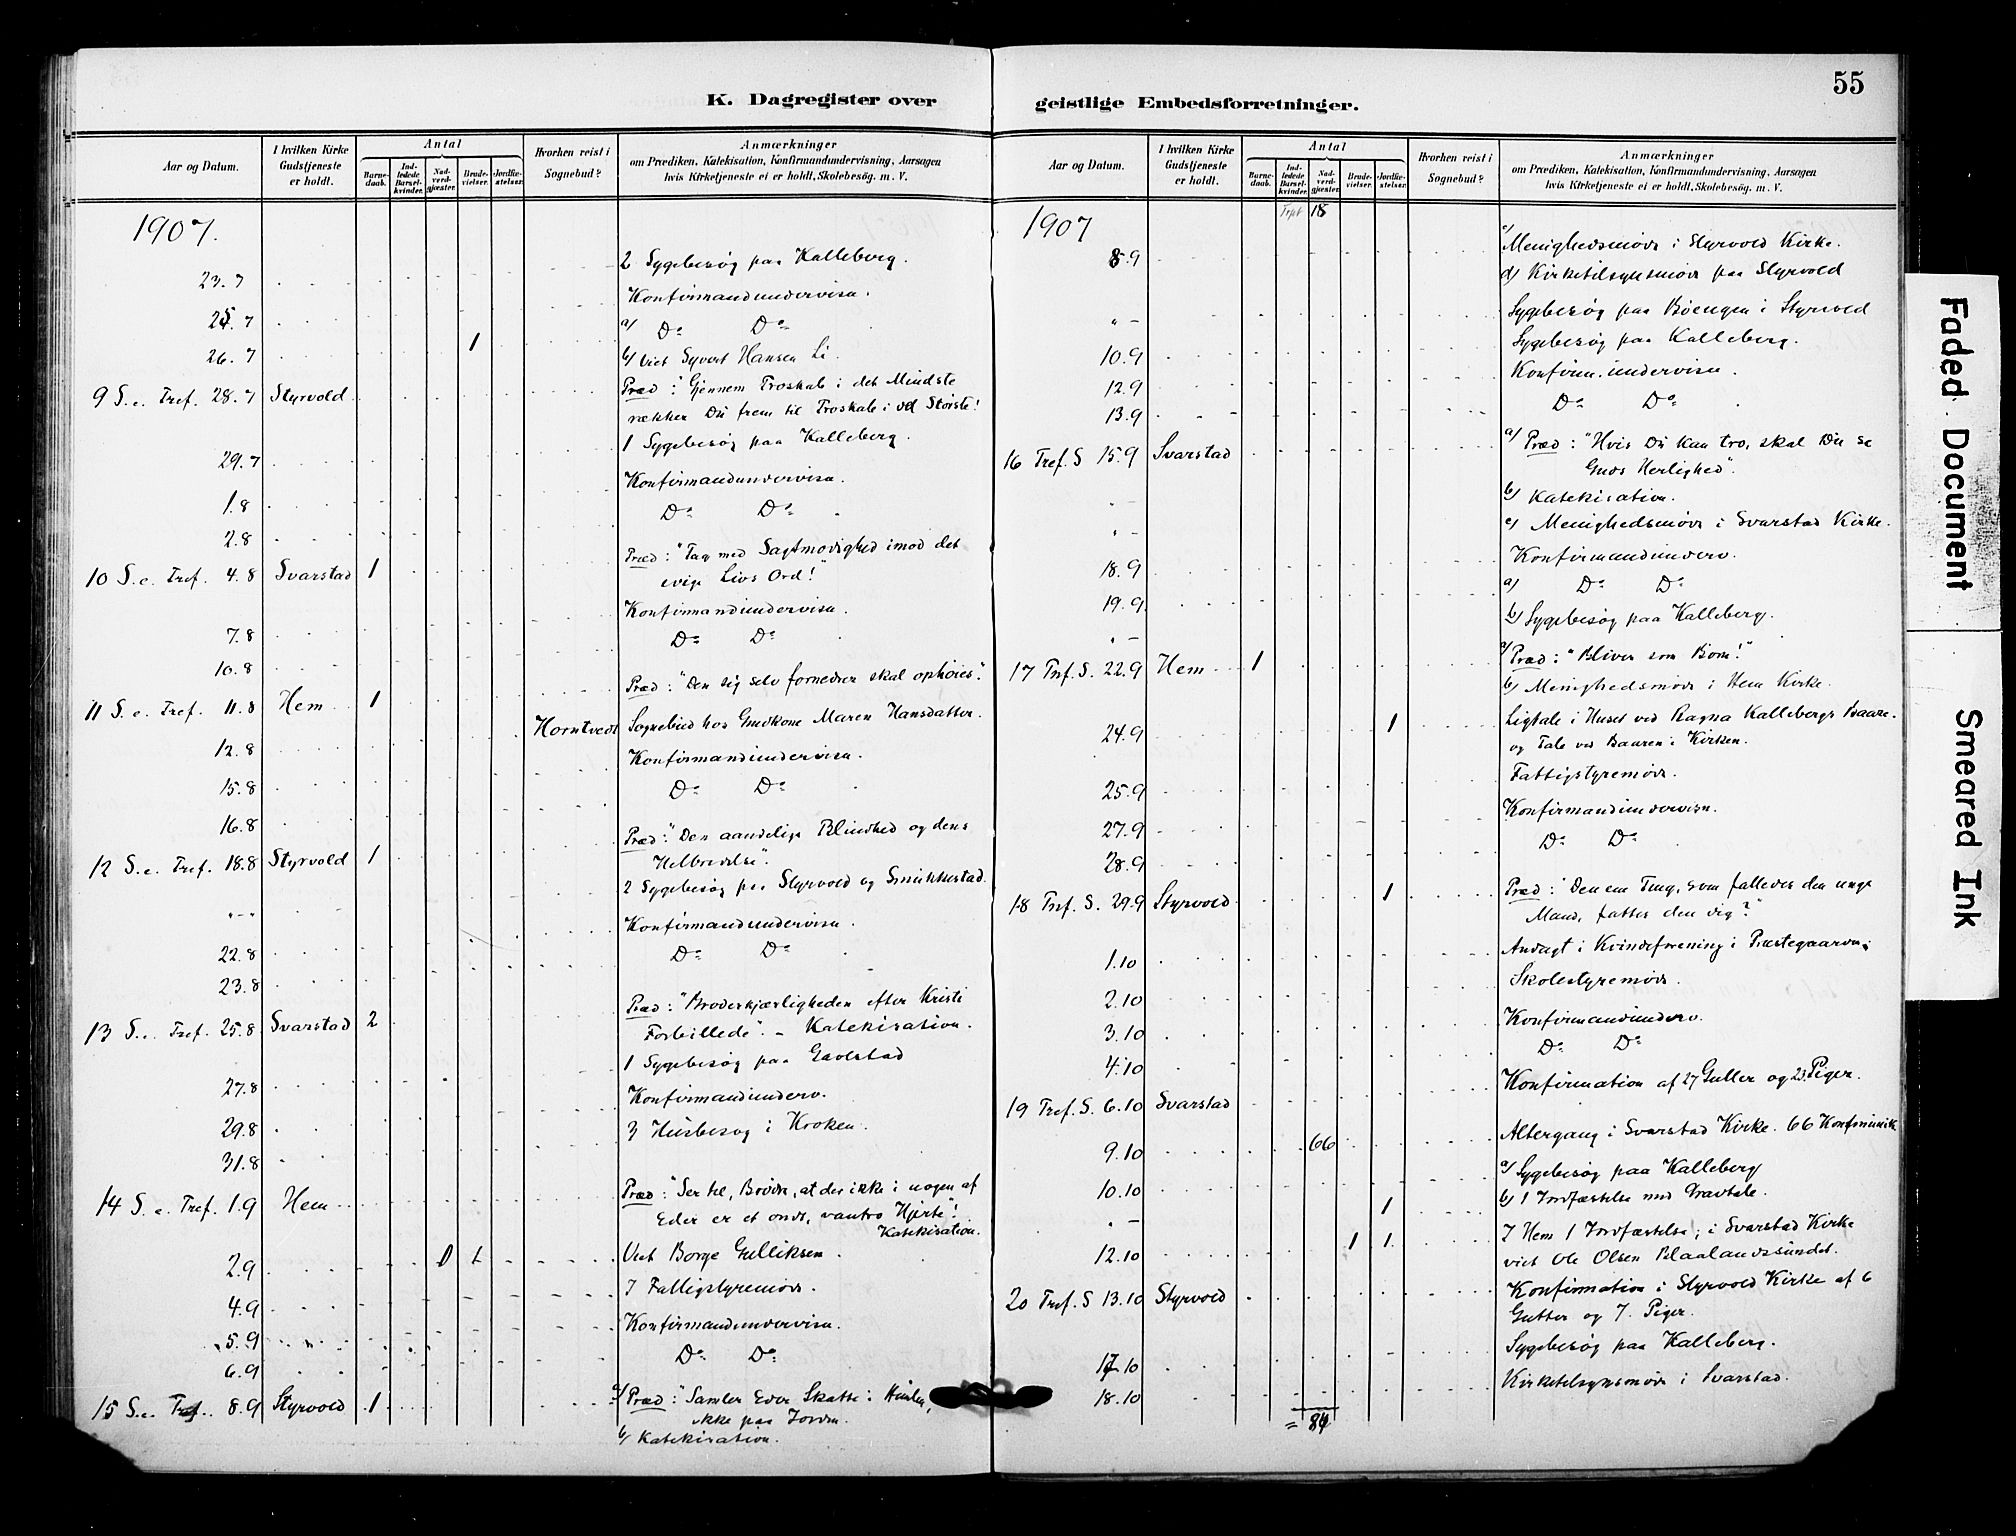 55
K. Dagregister over
geistlige Embedsforretninger.
Aar og Datum.
I hvilken Kirke Gudstjeneste er holdt.
Antal
Barnedaab.
Indledede Barselkvinder.
Nadverdgjester.
Brudevielser.
Jordfæstelser.
Hvorhen reist i Sognebud?
Anmærkninger
om Prædiken, Katekisation, Konfirmandundervisning, Aarsagen
hvis Kirketjeneste ei er holdt, Skolebesøg. m. V.
1907.
23.7 2 Sygebesøg paa Kalleberg.
25.7 Konfirmandundervisn.
26.7 a) Do Do
1 b) Viet Syvert Hansen Li.
9 S. e. Tref. 28.7 Styrvold Præd: "Gjennem Troskab i det Mindste
rækker Du frem til Troskab i det Største!
29.7 1 Sygebesøg paa Kalleberg.
1.8 Konfirmandundervisn.
2.8 Do Do
10 S. e. Tref. 4.8 Svarstad 1 Præd: "Tag med Sagtmodighed imod det
evige Livs Ord!"
7.8 Konfirmandundervisn.
10.8 Do Do
11 S. e. Tref. 11.8 Hem 1 Præd: "Den sig selv fornedrer skal ophøies".
12.8 Horntvedt Sognebud hos Gaardkone Maren Hansdatter.
15.8 Konfirmandundervisn.
16.8 Do Do
12 S. e. Tref. 18.8 Styrvold 1 Præd: "Den aandelige Blindhed og dens
Helbredelse".
" - " 2 Sygebesøg paa Styrvold og Smukkestad.
22.8 Konfirmandundervisn.
23.8 Do Do
13 S. e. Tref. 25.8 Svarstad 2 Præd: "Broderkjærligheden efter Kristi
Forbillede". - Katekisation.
27.8 1 Sygebesøg paa
29.8 Konfirmandunderv.
31.8 3 Husbesøg i Kroken.
14 S. e. Tref. 1.9 Hem Præd: "Ser til, Brødre, at der ikke i nogen af
Eder er et ondt, vantro Hjerte"!
Katekisation.
2.9 1 Viet Borge Gulliksen.
4.9 I Fattigstyremøde.
5.9 Konfirmandundervisn.
6.9 Do Do
15 S. e. Tref. 8.9 Styrvold 1 a) Præd: "Samler Eder Skatte i Himlen,
ikke paa Jorden.
b) Katekisation.
Aar og Datum.
I hvilken Kirke Gudstjeneste er holdt.
Antal
Barnedaab.
Indledede Barselkvinder.
Nadverdgjester.
Brudevielser.
Jordfæstelser.
Hvorhen reist i Sognebud?
Anmærkninger
om Prædiken, Katekisation, Konfirmandundervisning, Aarsagen
hvis Kirketjeneste ei er holdt, Skolebesøg. m. V.
1907
Trpt 18
8.9 c) Menighedsmøde i Styrvold Kirke.
d) Kirketilsynsmøde paa Styrvold
" - Sygebesøg paa Bøengen i Styrvold
10.9 Sygebesøg paa Kalleberg.
12.9 Konfirm. undervisn.
13.9 Do Do
16 Tref. S 15.9 Svarstad a) Præd: "Hvis Du kan tro, skal Du se
Guds Herlighed".
" b) Katekisation.
" - c) Menighedsmøde i Svarstad Kirke.
18.9 Konfirmandunderv.
19.9 a) Do Do
" - b) Sygebesøg paa Kalleberg.
17 Tref. S. 22.9 Hem 1 a) Præd: "Bliver som Børn!"
b) Menighedsmøde i Hem Kirke.
24.9 1 Ligtale i Huset ved Ragna Kallebergs Baare.
og Tale ved Baaren i Kirken.
25.9 Fattigstyremøde.
27.9 Konfirmandundervisn.
28.9 Do Do
18 Tref. S. 29.9 Styrvold 1 Præd: "Den ene Ting, som fattedes den unge
Mand, fattes den dig?"
1.10 Andagt i Kvindeforening i Præstegaarden.
2.10 Skolestyremøde.
3.10 Konfirmandunderv.
4.10 Do Do
19 Tref. S. 6.10 Svarstad Konfirmation af 27 Gutter og 23 Piger.
9.10 66 Altergang i Svarstad Kirke. 66 Konfmunik
10.10 a) Sygebesøg paa Kalleberg
" - 1 b) 1 Jordfæstelse med Gravtale.
12.10 1 1 I Hem 1 Jordfæstelse; i Svarstad Kirke
viet Ole Olsen Blaalandssundet.
20 Tref. S 13.10 Styrvold Konfirmation i Styrvold Kirke af 6
Gutter og 7. Piger.
17.10 Sygebesøg paa Kalleberg.
18.10 Kirketilsynsmøde i Svarstad.
= 84
Faded Document
Smeared Ink